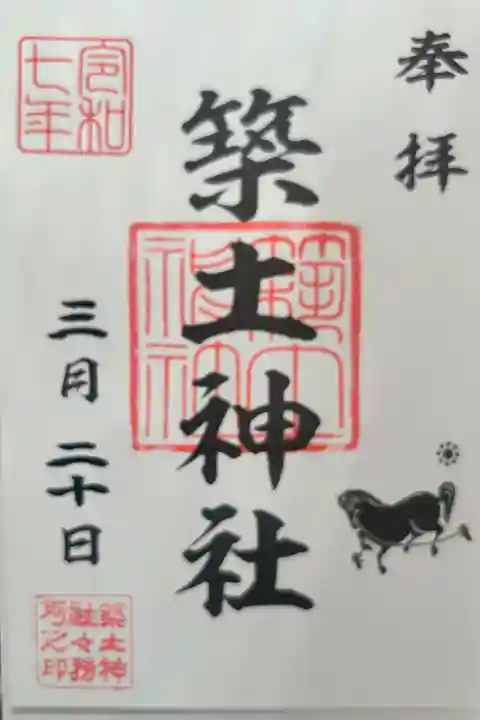 奉拝
築土神社
築土神社
令和
七年
三月二十日
築土神
社々務
所之印